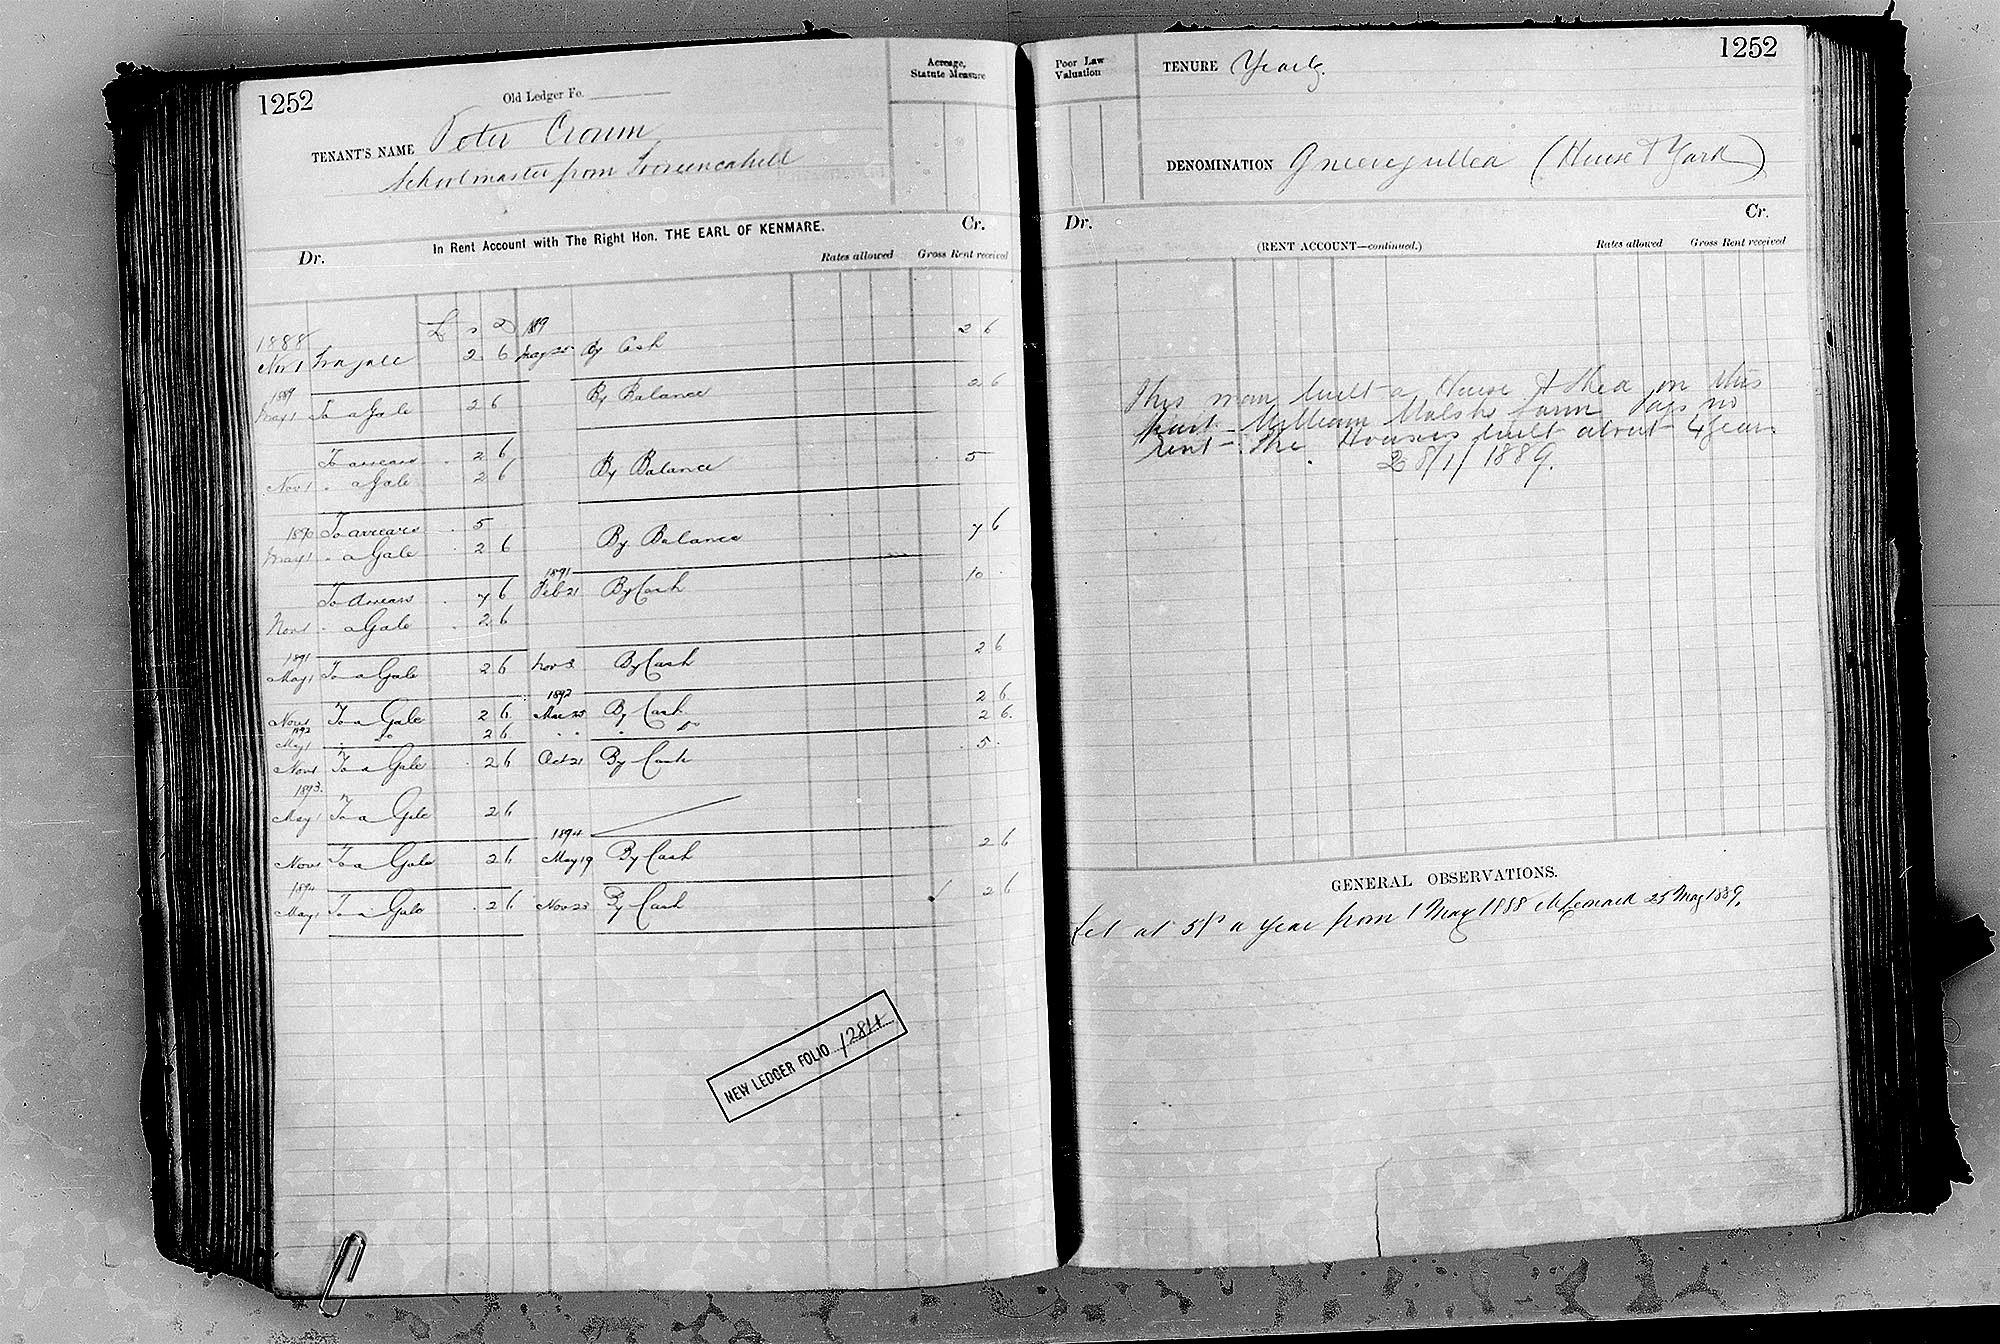 1252
Old Ledger Fo.
TENANT'S NAME Peter Cronin
Schoolmaster from
Acreage, Statute Measure
In Rent Account with The Right Hon. THE EARL OF KENMARE.
Dr. Cr.
Rates allowed Gross Rent received
£ s D 1889
1888
Nov 1 2 6 May 25 By Cash 2 6
1889
May 1 To a Gale 2 6 By Balance 2 6
To arrears 2 6
Nov 1 " a Gale 2 6 By Balance 5
1890 To arrears 5
May 1 " a Gale 2 6 By Balance 7 6
1891
To Arrears 7 6 Feb 21 By Cash 10
Nov 1 " a Gale 2 6
1891
May 1 To a Gale 2 6 Nov 3 By Cash 2 6
1892
Nov 1 To a Gale 2 6 Mar 25 By Cash 2 6
1892
May 1 " Do 2 6 " " " Do 2 6
Nov 1 To a Gale 2 6 Oct 21 By Cash 5
1893
May 1 To a Gale 2 6
1894
Nov 1 To a Gale 2 6 May 19 By Cash 2 6
1894
May 1 To a Gale 2 6 Nov 23 By Cash 2 6
NEW LEDGER FOLIO 1284
1252
Poor Law Valuation
TENURE Yearly.
DENOMINATION Gneevegullea (House & Yard)
Dr. Cr.
(RENT ACCOUNT—continued.)
Rates allowed Gross Rent received
This man built a House & Shed on this
part William Walshs farm pays no
rent - The Houses built about 4 years
28/1/1889.
GENERAL OBSERVATIONS.
Let at 5/- a year from 1 May 1888 25 May 1889.